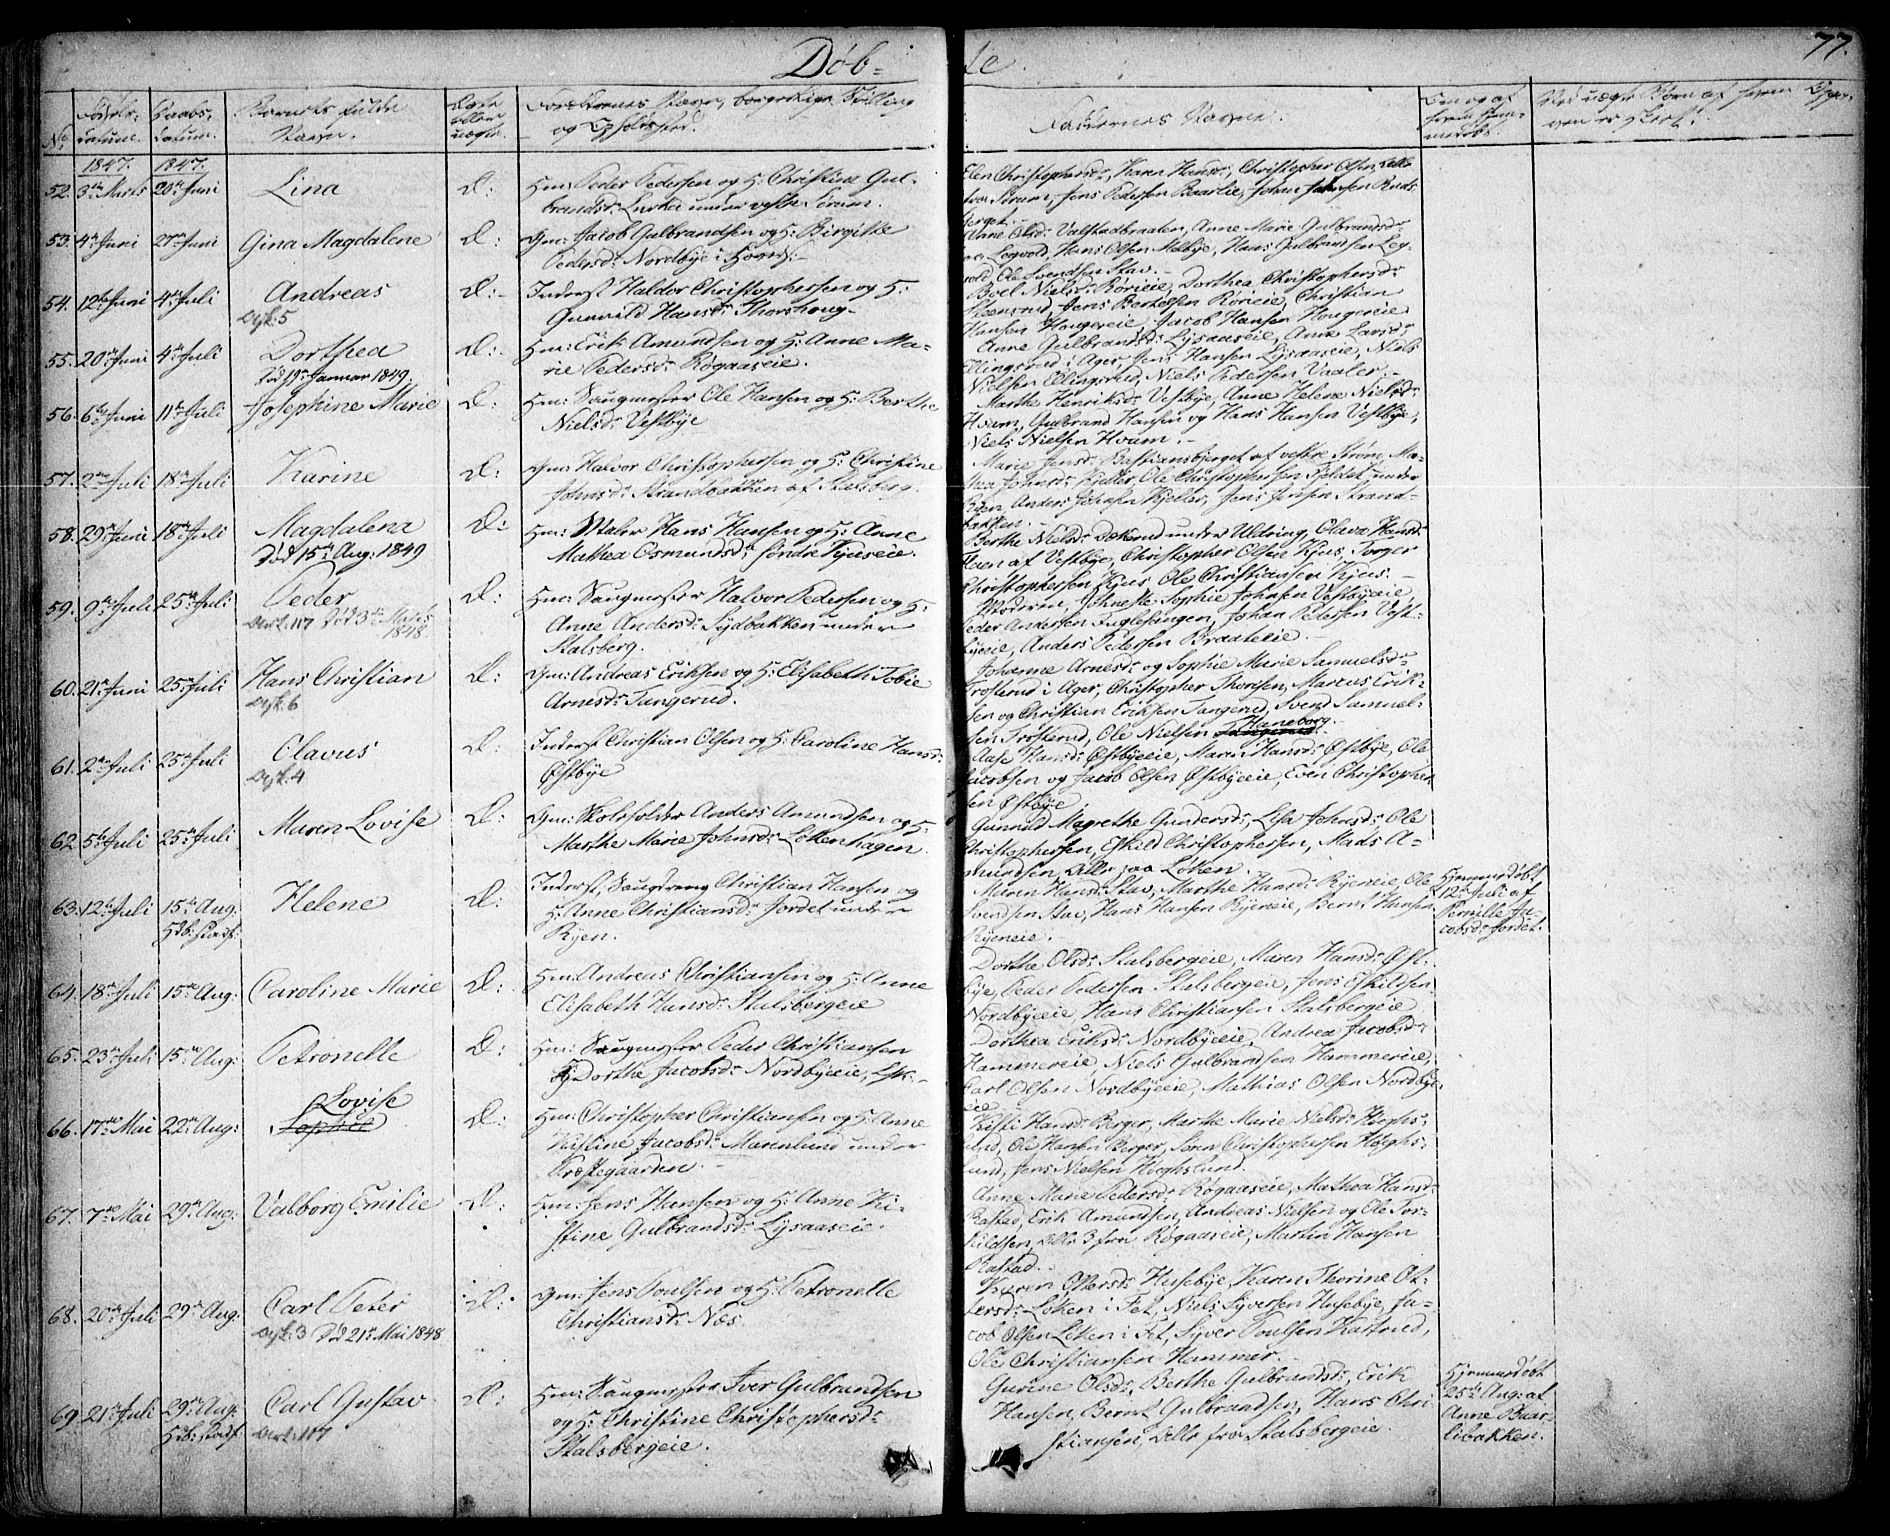 Døb=
te
77.
No
Fødsels-
datum.
Daabs-
datum.
Barnets fulde
Navn.
Ægte
eller
uægte.
Forældrenes Navn, borgerlige Stilling
og Opholdssted.
Faddernes Navne.
Om og af
hvem hjem-
medøbt.
Ved uægte Børn af hvem Opga-
ven er skeet.
1847. 1847.
52. 3die Marts 20de Juni Lina Æ: Hm: Peder Pedersen og H: Christine Gul-
brandsdr under vestre Sørum.
Elen Christophersdr, Karen Hansdr, Christopher Olsen, alle
fra Sørum, Jens Pedersen Baarlie, Johan Johnsen Buds
berget.
53. 4de Juni 27de Juni Gina Magdalene Æ: Gm: Jacob Gulbrandsen og H: Birgitte
Pedersdr Nordbye i
Anne Olsdr Valstadbraaten, Anne Marie Gulbrandsdr
Legvold, Hans Olsen Melbye, Hans Gulbrandsen Leg-
vold, Ole Svendsen Stav.
54. 12te Juni 4de Juli Andreas Æ: Inderst Haldor Christophersen og H:
Dysk. 5
Gunnild Hansdr Thorshoug
Boel Nielsdr Rørieie, Dorthea Christophersdr
Steensrud, Jens Bertelsen Rørieie, Christian
Hansen Hougereie, Jacob Hansen Hougereie
55. 20de Juni 4de Juli Dorthea Æ: Hm: Erik Amundsen og H: Anne Ma-
Død 19de Januar 1849.
rie Pedersdr Røgaaseie.
Anne Gulbrandsdr Lysaaseie, Anne Larsdr
Ellingsrud i Ager, Jens Hansen Lysaaseie, Niels
Nielsen Ellingsrud, Niels Pedersen Vaaler.
56. 6te Juni 11te Juli Josephine Marie Æ: Hm: Saugmester Ole Hansen og H: Berthe
Nielsdr Vestbye
Marthe Henriksdr Vestbye, Anne Helene Nielsdr
Hvam, Gulbrand Hansen og Hans Hansen Vestbye,
Niels Nielsen Hvam.
57. 2den Juli 18de Juli Karine Æ: Gm: Halvor Christophersen og H: Christine
Johnsdr Strandbakken af Stalsberg.
Marie Jensdr Bastiansbjerget af vestre Strøm, Ma-
thea Johnsdr Kjeller, Ole Christophersen Feldet under
Ryen, Anders Johnsen Kjeller, Jens Jensen Strand-
bakken.
58. 29de Juni 18de Juli Magdalena Æ: Hm: Maler Hans Hansen og H: Anne
Død 15de Aug: 1849
Mathea Osmundsdr søndre Tyuseie.
Berthe Nielsdr under Uldring, Olava Hansdr
Haen af Vestbye, Christopher Olsen Kjus, Torger
Christophersen Kjus, Ole Christiansen Kjus.
59. 9de Juli 25de Juli Peder Æ: Hm: Saugmester Halvor Pedersen og H:
Død 3die Marts
1848.
Anne Andersdr Sydbakken under
Stalsberg.
Moderen, Johneste Sophie Johnsen Vestbyeeie,
Peder Andersen Fuglesangen, Johan Pedersen Vest-
byeeie, Anders Pedersen Braateeie.
60. 21de Juni 25de Juli Hans Christian Æ: Gm: Andreas Eriksen og H: Elisabeth Tobie
Dysk. 6
Arnesdr Tangerud.
Johanne Arnesdr og Sophie Marie Samuelsdr
Trosterud i Ager, Christopher Thorsen, Marcus Erik-
sen og Christian Eriksen Tangerud, Svend Samuel-
sen Trosterud, Ole Nielsen Haneborg.
61. 2den Juli 25de Juli Olavus Æ: Inderst Christian Olsen og H: Caroline Hansdr
Dysk. 4
Østbye
Aase Hansdr Østbyeeie, Maren Hansdr Østbye, Ole
Jacobsen og Jacob Olsen Østbyeeie, Even Christopher-
sen Østbye.
62. 5te Juli 25de Juli Maren Lovise Æ: Gm: Skoleholder Anders Amundsen og H:
Marthe Marie Johnsdr Løkenhagen.
Gunnild Magrethe Gundersdr, Lisa Johnsdr Ole
Christophersen, Eskild Christophersen, Mads A-
mundsen, Alle paa Løken.
63. 12te Juli 15de Aug. Helene Æ: Inderst, Saugdreng Christian Hansen og
Hdb: stadf:
H: Anne Christiansdr Jordet under
Ryen.
Maren Hansdr Stav, Marthe Hansdr Ryeneie, Ole
Svendsen Stav, Hans Hansen Ryeneie, Bernt Hansen
Ryeneie.
Hjemmedøbt
12te Juli af
Pernille Ja-
cobsdr Jordet.
64. 18de Juli 15de Aug: Caroline Marie Æ: Hm: Andreas Christiansen og H: Anne
Elisabeth Hansdr Stalsbergeie
Dorthe Olsdr Stalsbergeie, Maren Hansdr Øst-
bye, Peder Pedersen Stalsbergeie, Jens Eskildsen
Nordbyeeie, Hans Christiansen Stalsbergeie
65. 23de Juli 15de Aug: Petronelle Æ: Hm: Saugmester Peder Christiansen
og Dorthe Jacobsdr Nordbyeeie,
Dorthea Eriksdr Nordbyeeie, Andrea Jacobsdr
Hammereie, Niels Gulbrandsen Hammereie,
Carl Olsen Nordbyeeie, Mathias Olsen Nordbye
eie
66. 17de Mai 22de Aug: Lovise Sophie Æ: Hm: Christopher Christiansen og H: Anne
Kistine Jacobsdr Marenlund under
Præstegaarden.
Kisti Hansdr Berger, Marthe Marie Nielsdr Høeghs-
lund, Ole Hansen Berger, Søren Christophersen Høeghs-
lund, Jens Nielsen Høeghslund.
67. 7de Mai 29de Aug: Valborg Emilie Æ: Hm: Jens Hansen og H: Anne Ki-
stine Gulbrandsdr Lysaaseie.
Anne Marie Pedersdr Røgaaseie, Mathea Hansdr
Rastad, Erik Amundsen, Andreas Nielsen og Ole Tor-
kildsen, alle 3 fra Røgaaseie, Martin Hansen
Rastad.
68. 20de Juli 29de Aug: Carl Peter Æ: Gm: Jens Poulsen og H: Petronelle
Dysk. 3 Død 21de Mai 1848
Christiansdr Næs.
Karen Ottersdr Husebye, Karen Thorine Ot-
tersdr Løken i Fet, Niels Syversen Husebye, Ja-
cob Olsen Løken i Fet, Syver Poulsen Kastrud,
Ole Christiansen Hammer.
69. 21de Juli 29de Aug. Carl Gustav Æ: Hm: Saugmester Iver Gulbrandsen
Hdb: stadf.
og H: Christine Christophersdr
Stalsbergeie.
Gurine Olsdr, Berthe Gulbrandsdr, Erik
Hansen, Bernt Gulbrandsen, Hans Chri-
stiansen, Alle fra Stalsbergeie.
Hjemmedøbt
25de Aug: af
Anne Baar-
libakken.